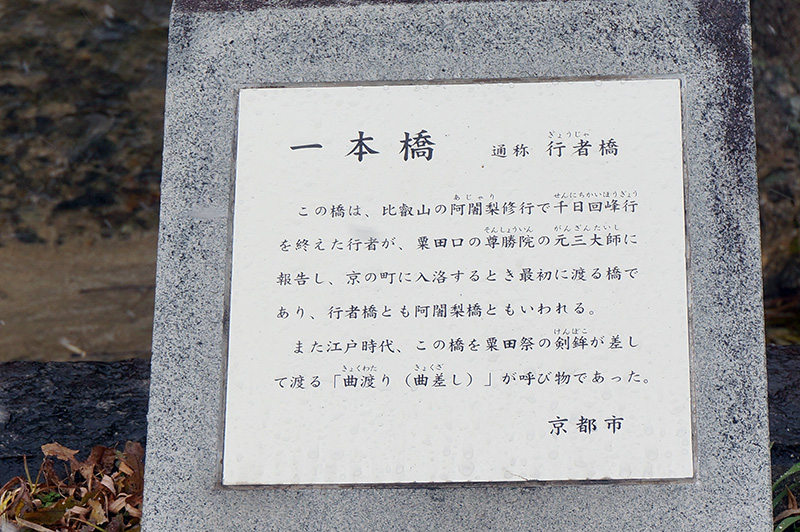 一本橋 通称 行者橋
ぎょうじゃ
この橋は、比叡山の阿闍梨修行で千日回峰行
あじゃり せんにちかいほうぎょう
を終えた行者が、粟田口の尊勝院の元三大師に
そんしょういん がんざんたいし
報告し、京の町に入洛するとき最初に渡る橋で
あり、行者橋とも阿闍梨橋ともいわれる。
また江戸時代、この橋を粟田祭の剣鉾が差し
けんぼこ
て渡る「曲渡り(曲差し)」が呼び物であった。
きょくわた きょくざ
京都市